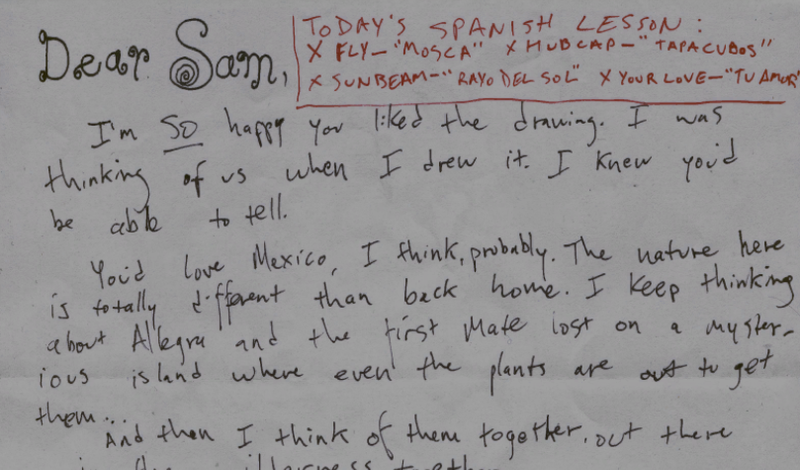 Dear Sam,
TODAY'S SPANISH LESSON:
X FLY-"MOSCA" X HUBCAP-"TAPACUBOS"
X SUNBEAM-"RAYO DEL SOL" X YOUR LOVE-"TU AMOR"
I'm SO happy you liked the drawing. I was
thinking of us when I drew it. I knew you'd
be able to tell.
You'd love Mexico, I think, probably. The nature here
is totally different than back home. I keep thinking
about Allegra and the First Mate lost on a myster-
ious island where even the plants are out to get
them...
And then I think of them together, out there